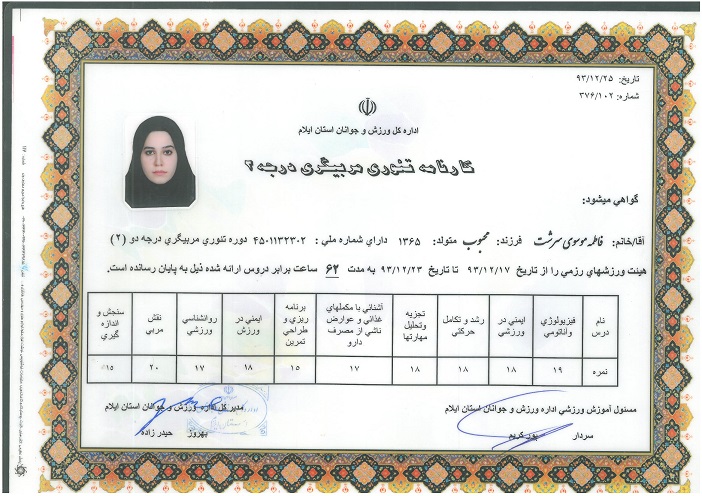 تاریخ: ۹۳/۱۲/۲۵
شماره: ۳۷۶/۱۰۲
اداره کل ورزش و جوانان استان ایلام
کارنامه تئوری مربیگری درجه ۲
گواهي ميشود:
آقا/خانم: فاطمه موسوی سرشت فرزند: محبوب متولد: ۱۳۶۵ داراي شماره ملي : ۴۵۰۱۱۳۲۳۰۲ دوره تئوري مربيگري درجه دو (۲)
هيئت ورزشهاي رزمي را از تاريخ ۹۳/۱۲/۱۷ تا تاريخ ۹۳/۱۲/۲۳ به مدت ۶۲ ساعت برابر دروس ارائه شده ذيل به پايان رسانده است.
نام درس فيزيولوژي وآناتومي ايمني در ورزشي رشد و تكامل حركتي تجزيه وتحليل مهارتها آشنائي با مكملهاي غذائي و عوارض ناشي از مصرف دارو برنامه ريزي و طراحي تمرين ايمني در ورزش روانشناسي ورزشي نقش مربي سنجش و اندازه گيري
نمره ۱۹ ۱۸ ۱۸ ۱۸ ۱۷ ۱۵ ۱۸ ۱۷ ۲۰ ۱۵
مسئول آموزش ورزشي اداره ورزش و جوانان استان ايلام
سردار پور كريم
مدير كل اداره ورزش و جوانان استان ايلام
بهروز حيدر زاده